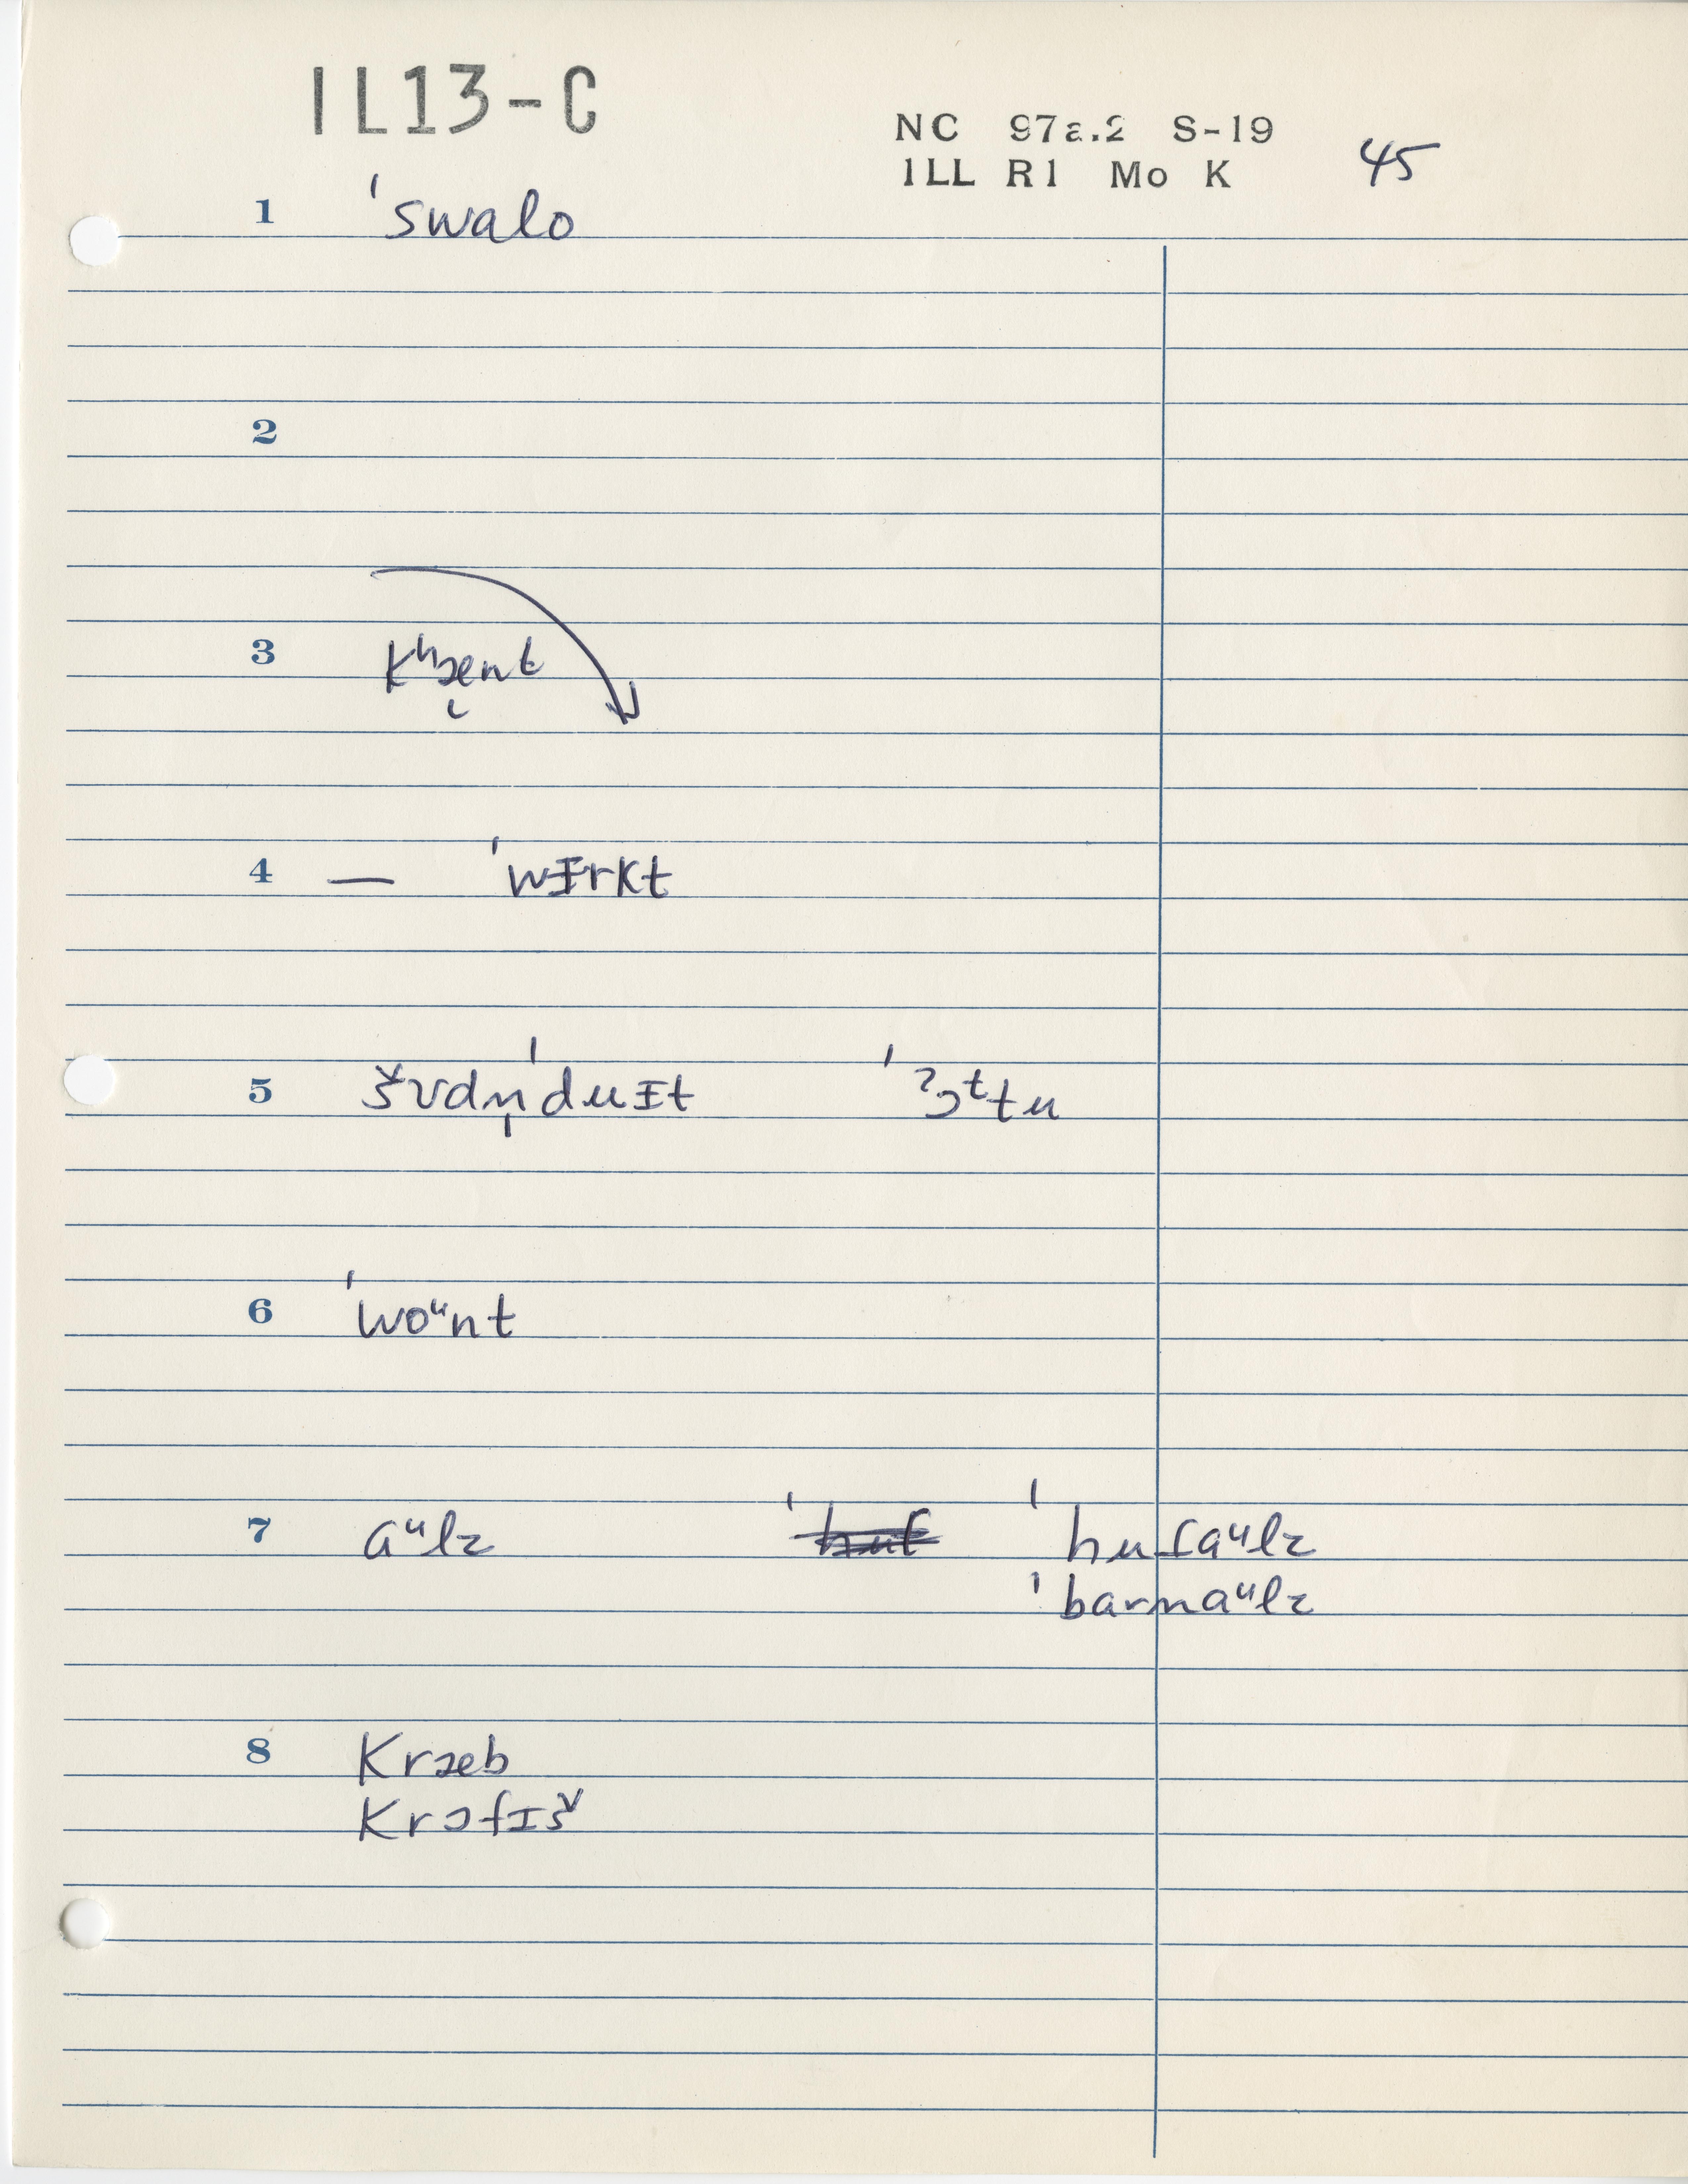 IL13-C
NC 97a.2 S-19
ILL R1 Mo K 45
1 ˈswalo
2
3 kʰæ̜nt
4 — ˈwɪrkt
5 šʊdn̩ˈduɪt ˈʔɔᵗtu
6 ˈwoᵘnt
7 aᵘlz ˈhufaᵘlz
ˈbarnaᵘlz
8 Kræb
Krɔfɪš